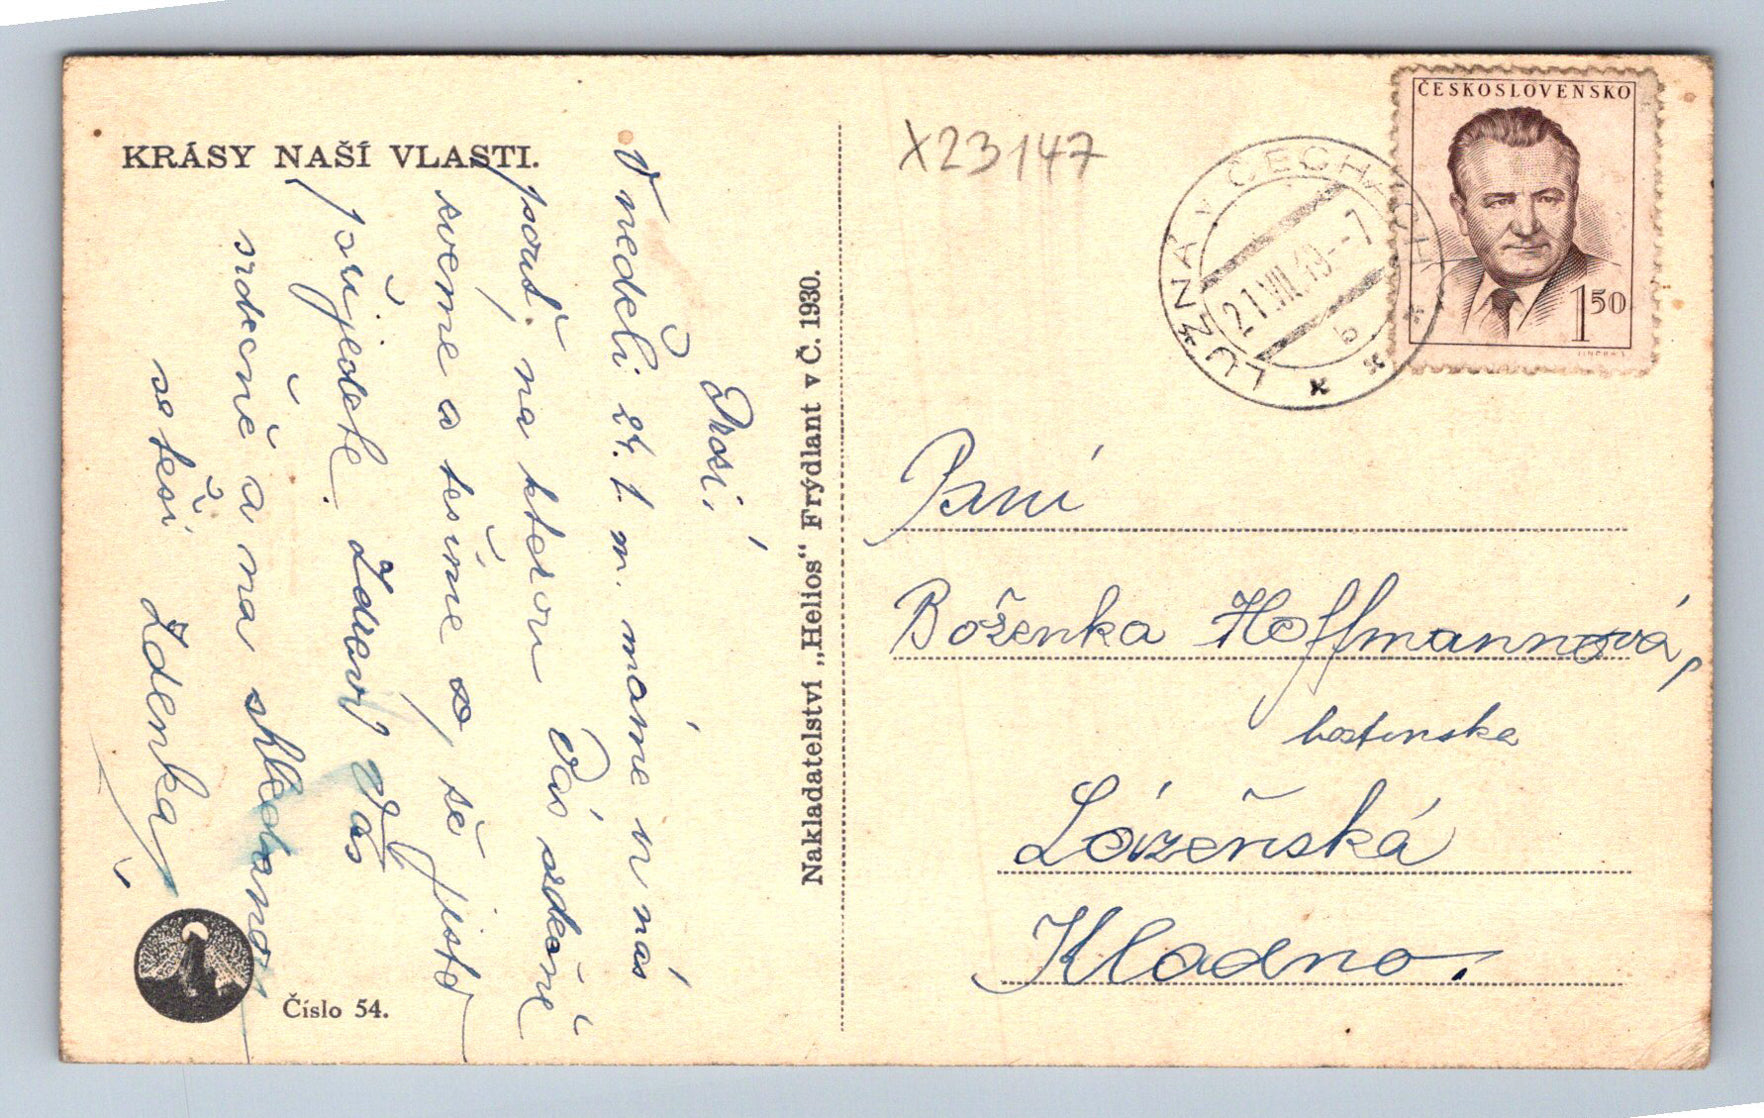 KRÁSY NAŠÍ VLASTI.
Drosí,
V neděli 24. t. m. máme u nás
pouť, na kterou Vás srdečně
zveme a těšíme se, že jistě
přijedete. Zdraví Vás
srdečně a na shledanou
se těší Zdenka
Číslo 54.
Nakladatelství „Helios“ Frýdlant v Č. 1930.
X23147
LUŽNÁ V ČECHÁCH
21.VII.49--7
b
ČESKOSLOVENSKO
1 50
JINDRA S.
Paní
Boženka Hoffmannová,
hostinská
Lázeňská
Kladno.